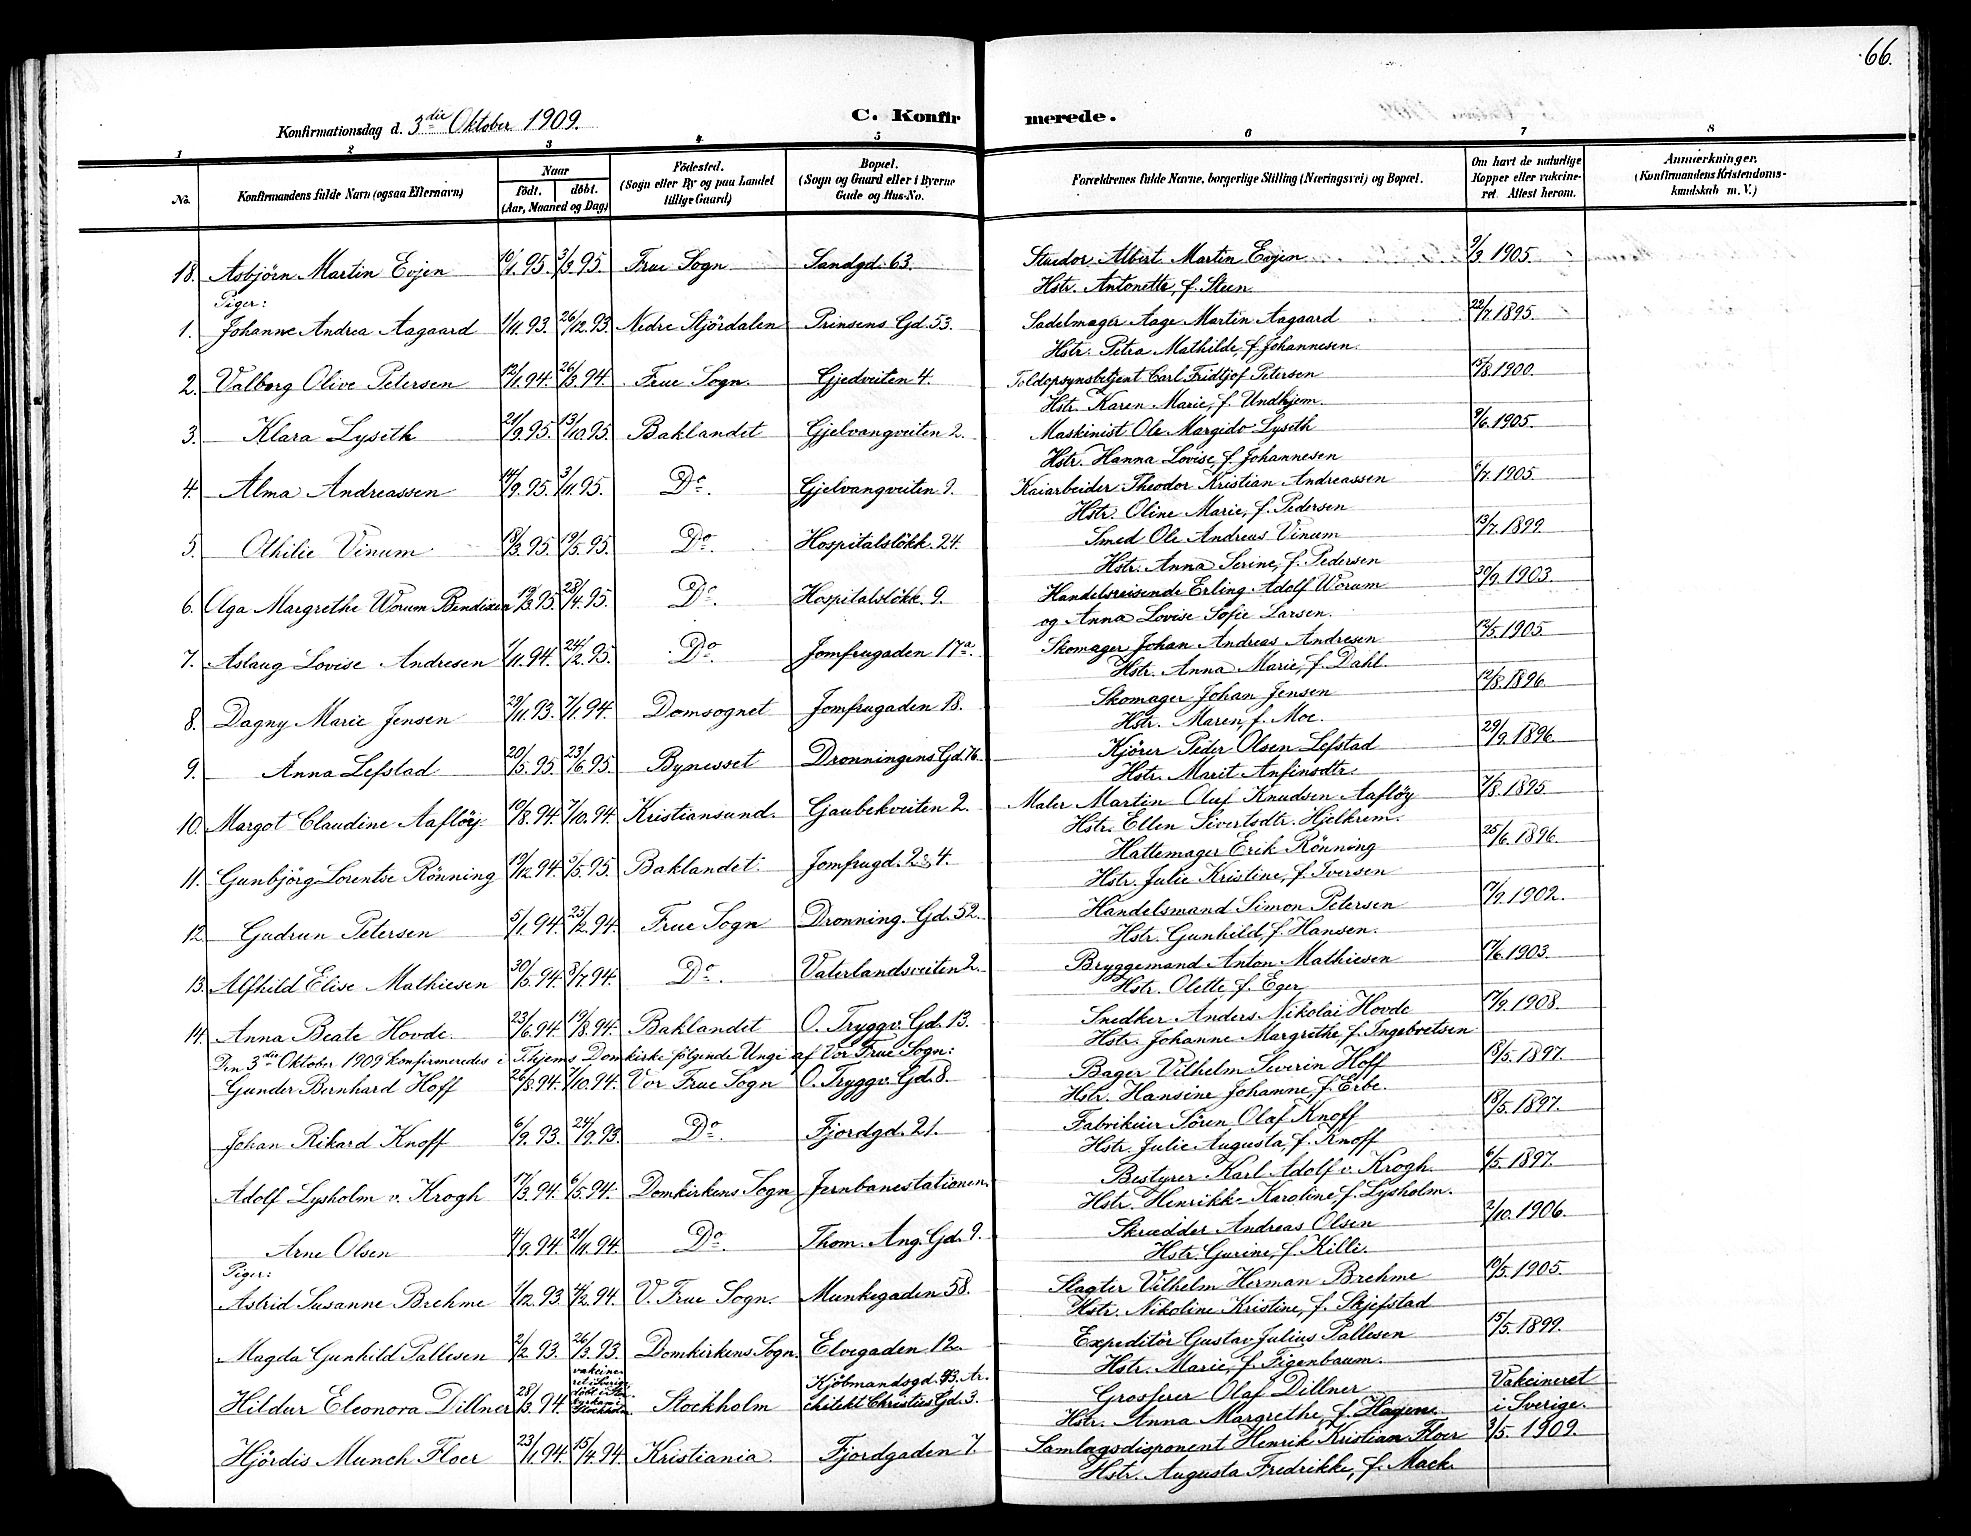 66.
Konfirmationsdag d. 3die Oktober 1909.
C. Konfirmerede.
1 2 3 4 5 6 7 8
No.
Konfirmandens fulde Navn (ogsaa Efternavn)
Naar
født. døbt.
(Aar, Maaned og Dag)
Födested.
(Sogn eller By og paa Landet
tillige Gaard)
Bopæl.
(Sogn og Gaard eller i Byerne
Gade og Hus-No.
Forældrenes fulde Navne, borgerlige Stilling (Næringsvei) og Bopæl.
Om havt de naturlige
Kopper eller vakcine-
ret. Attest herom.
Anmærkninger.
(Konfirmandens Kristendoms-
kundskab m. V.)
18. Asbjörn Martin Evjen 10/1.95. 3/3.95. Frue Sogn Sandgd. 63. Stuedor. Albert Martin Evjen 9/3 1905.
Hstr. Antonette, f. Steen
Piger:
1. Johanne Andrea Aagaard 1/11.93. 26/12.93. Nedre Stjördalen Prinsens Gd. 53. Sadelmager Aage Martin Aagaard 22/7.1895.
Hstr. Petra Mathilde, f. Johannesen.
2. Valborg Olive Petersen 12/1.94. 26/3.94. Frue Sogn. Gjedveiten 4. Toldopsynsbetjent Carl Fridtjof Petersen 15/8.1900.
Hstr. Karen Marie, f. Undhjem.
3. Klara Lyseth 21/9.95. 13/10.95. Baklandet Gjelvangveiten 2. Maskinist Ole Margido Lyseth 9/6.1905.
Hstr. Hanna Lovise, f. Johannesen
4. Alma Andreassen 14/9.95. 3/11.95. Do. Gjelvangveiten 9. Kaiarbeider Theodor Kristian Andreassen 6/7.1905.
Hstr. Oline Marie, f. Pedersen
5. Othilie Vinum 18/3.95. 19/5.95. Do. Hospitalslökk. 24. Smed Ole Andreas Vinum 13/7.1899.
Hstr. Anna Serine, f. Pedersen
6. Olga Margrethe Worum Bendixen 19/3.95. 28/4.95. Do. Hospitalslökk. 9. Handelsreisende Erling Adolf Worum 30/9.1903.
og Anna Lovise Sofie Larsen.
7. Aslaug Lovise Andresen 1/11.94. 24/2.95. Do. Jomfrugaden 17a. Skomager Johan Andreas Andresen 12/5.1905.
Hstr. Anna Marie, f. Dahl.
8. Dagny Marie Jensen 29/11.93. 7/1.94. Domsognet Jomfrugaden 18. Skomager Johan Jensen 12/8.1896.
Hstr. Maren, f. Moe.
9. Anna Lefstad 20/5.95. 23/6.95. Bynesset Dronningens Gd. 76. Kjörer Peder Olsen Lefstad 29/9.1896.
Hstr. Marit Anfinsdtr.
10. Margot Claudine Aaflöy 10/8.94. 7/10.94. Kristiansund. Gaubekveiten 2. Maler Martin Oluf Knudsen Aaflöy 7/8.1895.
Hstr. Ellen Sivertsdtr. Hjelkrem.
11. Gunbjörg Lorentse Rönning 19/12.94. 5/5.95. Baklandet Jomfrugd. 2-4. Hattemager Erik Rönning 25/6.1896.
Hstr. Julie Kristine, f. Iversen
12. Gudrun Petersen 5/1.94. 25/2.94. Frue Sogn Dronning. Gd. 52. Handelsmand Simon Petersen 17/9.1902.
Hstr. Gunhild, f. Hansen.
13. Alfhild Elise Mathiesen 30/5.94. 8/7.94. Do. Vaterlandsveiten 2. Bryggemand Anton Mathiesen 17/6.1903.
Hstr. Olette, f. Eger
14. Anna Beate Hovde. 23/6.94. 19/8.94. Baklandet O. Tryggv. Gd. 13. Snedker Anders Nikolai Hovde 17/9.1908.
Hstr. Johanne Margrethe, f. Ingebretsen
Den 3die Oktober 1909 konfirmeredes i Tkjems Domkirke følgende Unge af Vor Frue Sogn:
Gunder Bernhard Hoff 26/8.94. 7/10.94. Vor Frue Sogn O. Tryggv. Gd. 8. Bager Vilhelm Severin Hoff 13/5.1897.
Hstr. Hansine Johanne, f. Erbe.
Johan Rikard Knoff 6/9.93. 24/9.93. Do. Fjordgd. 21. Fabrikeier Sören Olaf Knoff 18/5.1897.
Hstr. Julie Augusta, f. Knoff
Adolf Lysholm v. Krogh 17/3.94. 6/5.94. Domkirkens Sogn Jernbanestationen. Bestyrer Karl Adolf v. Krogh. 6/5.1897.
Hstr. Henrikke Karoline, f. Lysholm.
Arne Olsen 4/9.94. 21/11.94. Do. Thom. Ang. Gd. 9. Skrædder Andreas Olsen 2/10.1906.
Hstr. Gurine, f. Killi.
Piger:
Astrid Susanne Brehme 1/12.93. 4/2.94. V. Frue Sogn. Munkegaden 58. Slagter Vilhelm Herman Brehme 10/5.1905.
Hstr. Nikoline Kristine, f. Skjefstad
Magda Gunhild Pallesen 2/2.93. 26/3.93. Domkirkens Sogn. Elvegaden 12. Expeditör Gustav Julius Pallesen 15/5.1899.
Hstr. Marie, f. Figenbaum.
Hildur Eleonora Dillner 28/3.94. Stockholm Kjöbmandsgd. 43. Ar-
chitekt Christies Gd. 3. Grosserer Olaf Dillner Vakcineret
Hstr. Anna Margrethe, f. Hagene. i Sverige.
Hjördis Munch Floer 23/1.94. 15/4.94. Kristiania Fjordgaden 7 Samlagsdisponent Henrik Kristian Floer 3/5.1909.
Hstr. Augusta Fredrikke, f. Mack.